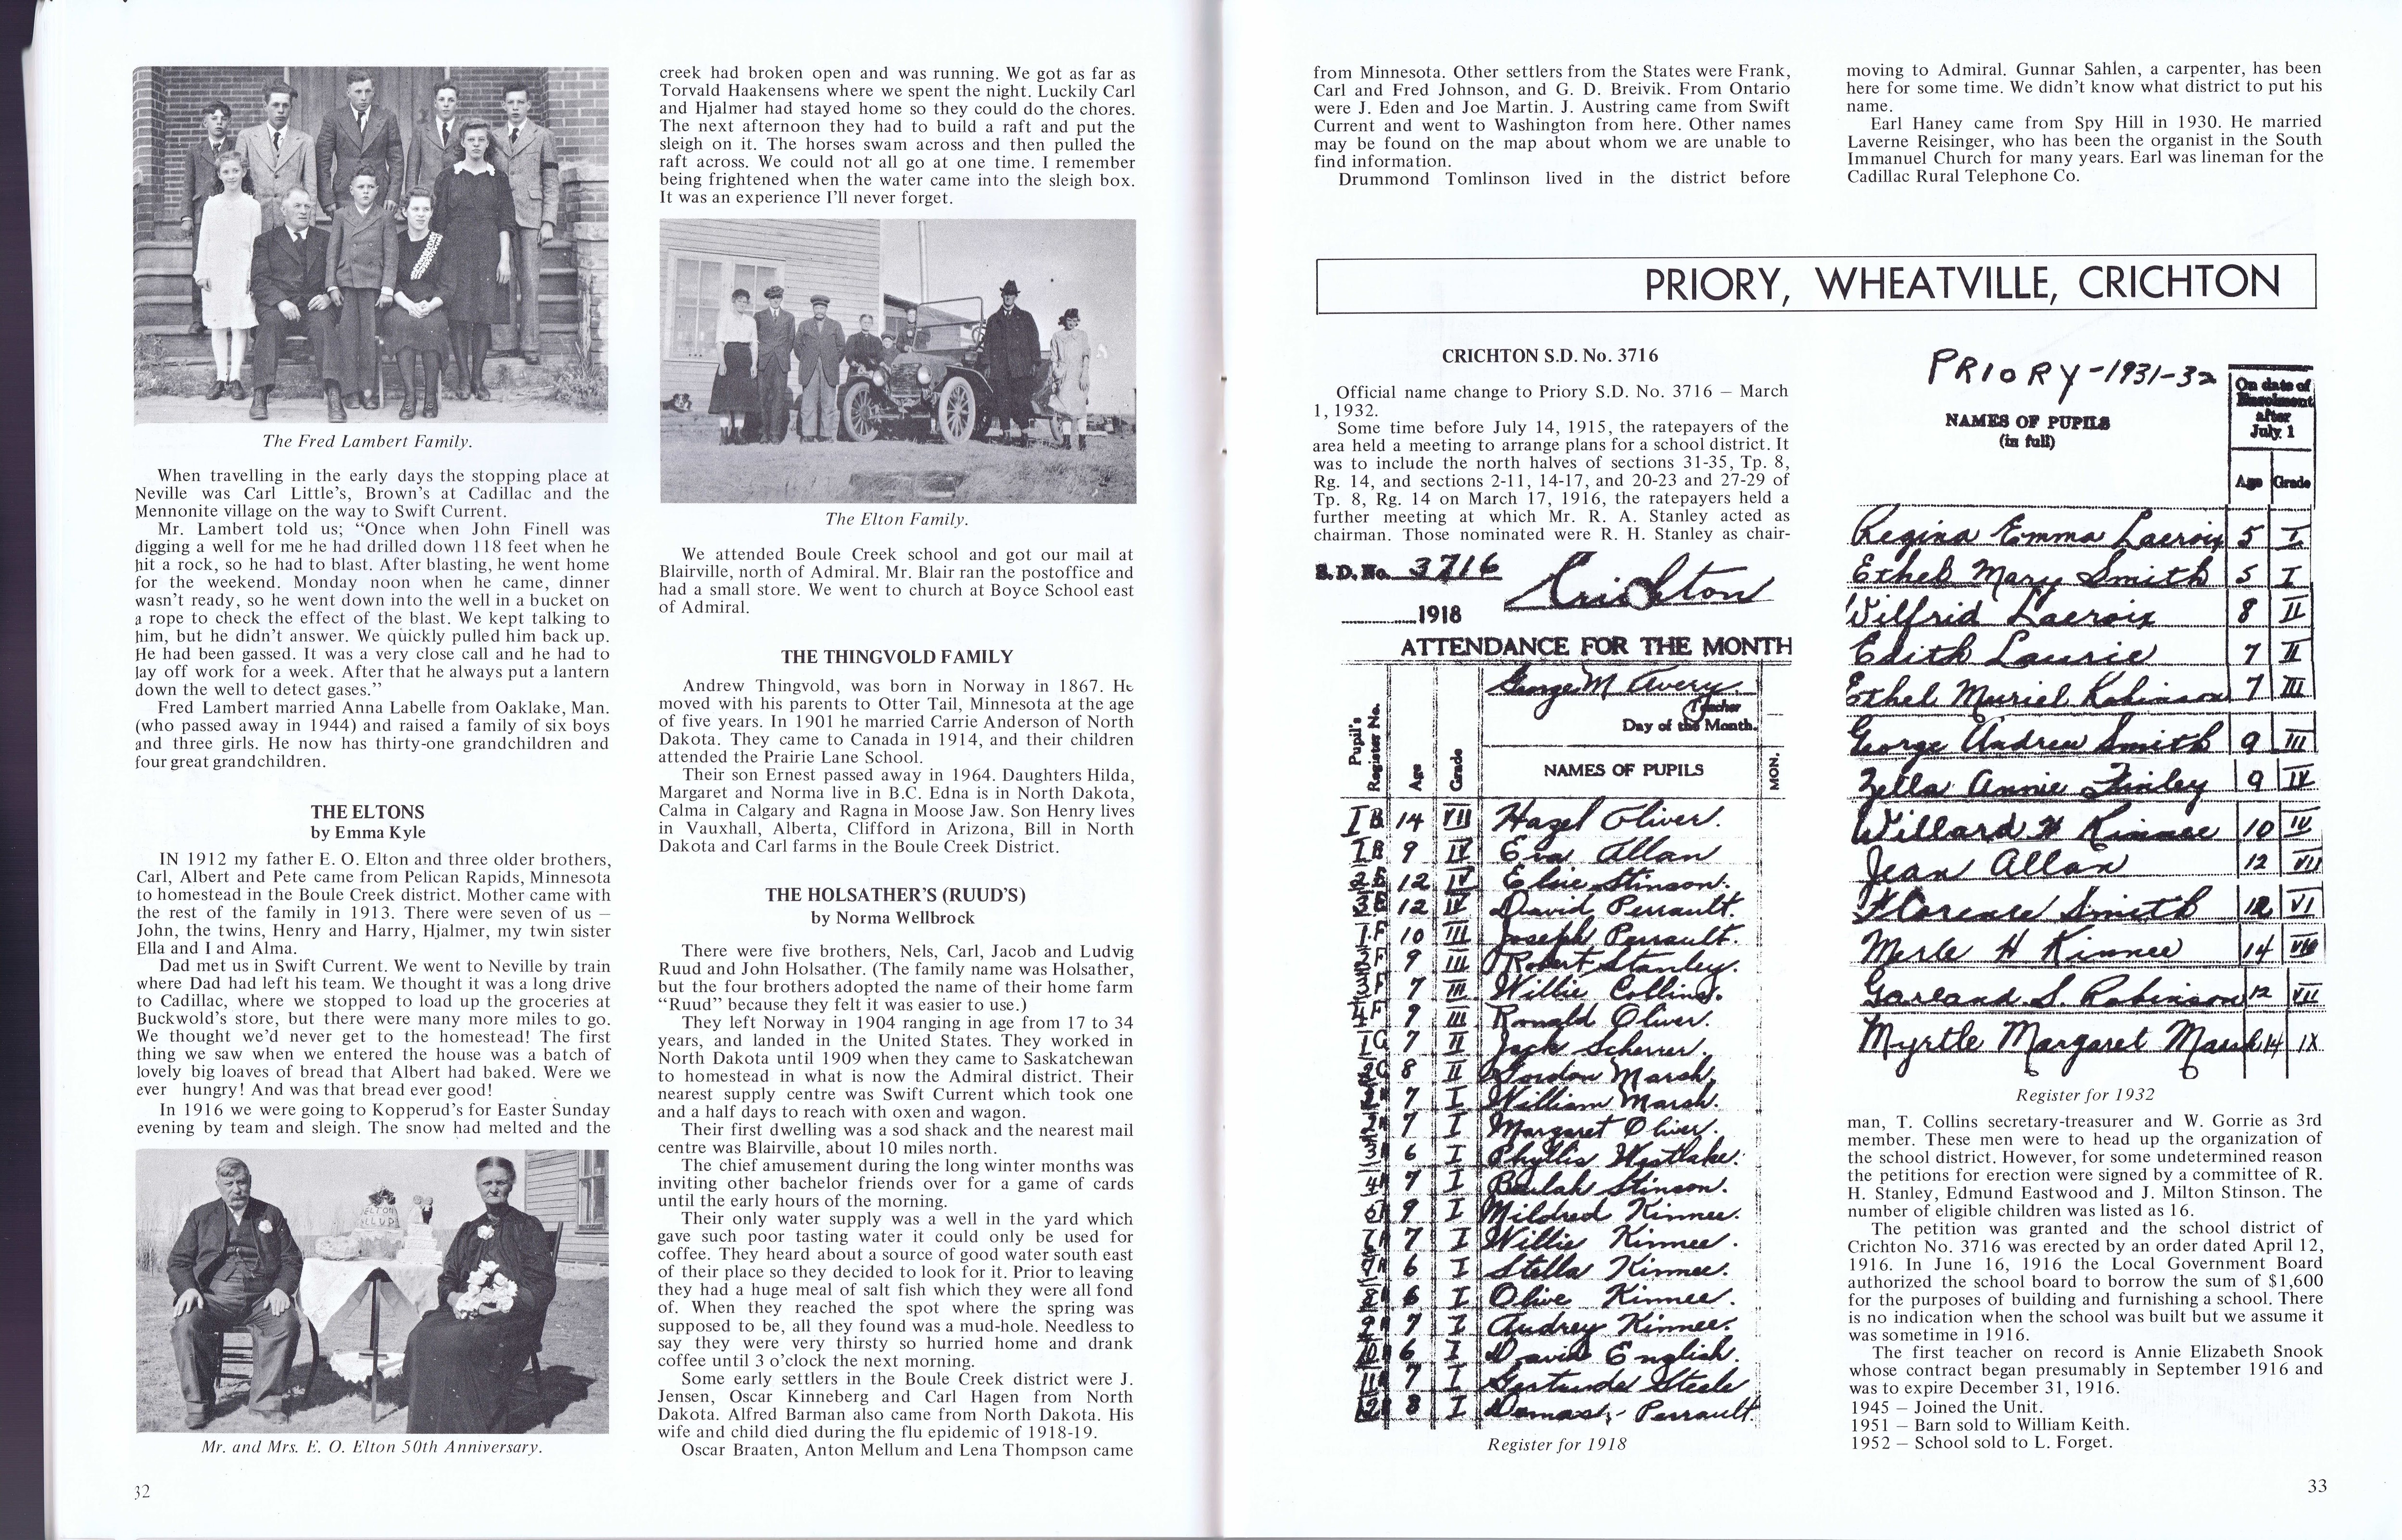 The Fred Lambert Family.
When travelling in the early days the stopping place at
Neville was Carl Little's, Brown's at Cadillac and the
Mennonite village on the way to Swift Current.
Mr. Lambert told us; “Once when John Finell was
digging a well for me he had drilled down 118 feet when he
hit a rock, so he had to blast. After blasting, he went home
for the weekend. Monday noon when he came, dinner
wasn't ready, so he went down into the well in a bucket on
a rope to check the effect of the blast. We kept talking to
him, but he didn't answer. We quickly pulled him back up.
He had been gassed. It was a very close call and he had to
lay off work for a week. After that he always put a lantern
down the well to detect gases.”
Fred Lambert married Anna Labelle from Oaklake, Man.
(who passed away in 1944) and raised a family of six boys
and three girls. He now has thirty-one grandchildren and
four great grandchildren.
THE ELTONS
by Emma Kyle
IN 1912 my father E. O. Elton and three older brothers,
Carl, Albert and Pete came from Pelican Rapids, Minnesota
to homestead in the Boule Creek district. Mother came with
the rest of the family in 1913. There were seven of us —
John, the twins, Henry and Harry, Hjalmer, my twin sister
Ella and I and Alma.
Dad met us in Swift Current. We went to Neville by train
where Dad had left his team. We thought it was a long drive
to Cadillac, where we stopped to load up the groceries at
Buckwold's store, but there were many more miles to go.
We thought we'd never get to the homestead! The first
thing we saw when we entered the house was a batch of
lovely big loaves of bread that Albert had baked. Were we
ever hungry! And was that bread ever good!
In 1916 we were going to Kopperud's for Easter Sunday
evening by team and sleigh. The snow had melted and the
Mr. and Mrs. E. O. Elton 50th Anniversary.
32
creek had broken open and was running. We got as far as
Torvald Haakensens where we spent the night. Luckily Carl
and Hjalmer had stayed home so they could do the chores.
The next afternoon they had to build a raft and put the
sleigh on it. The horses swam across and then pulled the
raft across. We could not all go at one time. I remember
being frightened when the water came into the sleigh box.
It was an experience I'll never forget.
The Elton Family.
We attended Boule Creek school and got our mail at
Blairville, north of Admiral. Mr. Blair ran the postoffice and
had a small store. We went to church at Boyce School east
of Admiral.
THE THINGVOLD FAMILY
Andrew Thingvold, was born in Norway in 1867. He
moved with his parents to Otter Tail, Minnesota at the age
of five years. In 1901 he married Carrie Anderson of North
Dakota. They came to Canada in 1914, and their children
attended the Prairie Lane School.
Their son Ernest passed away in 1964. Daughters Hilda,
Margaret and Norma live in B.C. Edna is in North Dakota,
Calma in Calgary and Ragna in Moose Jaw. Son Henry lives
in Vauxhall, Alberta, Clifford in Arizona, Bill in North
Dakota and Carl farms in the Boule Creek District.
THE HOLSATHER'S (RUUD'S)
by Norma Wellbrock
There were five brothers, Nels, Carl, Jacob and Ludvig
Ruud and John Holsather. (The family name was Holsather,
but the four brothers adopted the name of their home farm
“Ruud” because they felt it was easier to use.)
They left Norway in 1904 ranging in age from 17 to 34
years, and landed in the United States. They worked in
North Dakota until 1909 when they came to Saskatchewan
to homestead in what is now the Admiral district. Their
nearest supply centre was Swift Current which took one
and a half days to reach with oxen and wagon.
Their first dwelling was a sod shack and the nearest mail
centre was Blairville, about 10 miles north.
The chief amusement during the long winter months was
inviting other bachelor friends over for a game of cards
until the early hours of the morning.
Their only water supply was a well in the yard which
gave such poor tasting water it could only be used for
coffee. They heard about a source of good water south east
of their place so they decided to look for it. Prior to leaving
they had a huge meal of salt fish which they were all fond
of. When they reached the spot where the spring was
supposed to be, all they found was a mud-hole. Needless to
say they were very thirsty so hurried home and drank
coffee until 3 o'clock the next morning.
Some early settlers in the Boule Creek district were J.
Jensen, Oscar Kinneberg and Carl Hagen from North
Dakota. Alfred Barman also came from North Dakota. His
wife and child died during the flu epidemic of 1918-19.
Oscar Braaten, Anton Mellum and Lena Thompson came
from Minnesota. Other settlers from the States were Frank,
Carl and Fred Johnson, and G. D. Breivik. From Ontario
were J. Eden and Joe Martin. J. Austring came from Swift
Current and went to Washington from here. Other names
may be found on the map about whom we are unable to
find information.
Drummond Tomlinson lived in the district before
moving to Admiral. Gunnar Sahlen, a carpenter, has been
here for some time. We didn't know what district to put his
name.
Earl Haney came from Spy Hill in 1930. He married
Laverne Reisinger, who has been the organist in the South
Immanuel Church for many years. Earl was lineman for the
Cadillac Rural Telephone Co.
PRIORY, WHEATVILLE, CRICHTON
CRICHTON S.D. No. 3716
Official name change to Priory S.D. No. 3716 — March
1, 1932.
Some time before July 14, 1915, the ratepayers of the
area held a meeting to arrange plans for a school district. It
was to include the north halves of sections 31-35, Tp. 8,
Rg. 14, and sections 2-11, 14-17, and 20-23 and 27-29 of
Tp. 8, Rg. 14 on March 17, 1916, the ratepayers held a
further meeting at which Mr. R. A. Stanley acted as
chairman. Those nominated were R. H. Stanley as chair-
S.D. No. 3716 Crichton
1918
ATTENDANCE FOR THE MONTH
George M Avery
Teacher
Day of the Month.
Pupil's Register No. Age Grade NAMES OF PUPILS MON.
1 B 14 VII Hazel Oliver.
1 B 9 IV Eva Allan
2 B 12 IV Elsie Stinson.
3 B 12 IV David Perrault.
1 F 10 III Joseph Perrault.
2 F 9 III Robert Stanley.
3 F 7 III Willie Collins.
4 F 9 III Ronald Oliver.
1 C 7 II Jack Scherrer.
2 C 8 II Gordon Marsh.
7 I William Marsh.
7 I Margaret Oliver.
6 I Phyllis Westlake.
7 I Beulah Stinson.
9 I Mildred Kinnee.
7 I Willie Kinnee.
6 I Stella Kinnee.
6 I Olive Kinnee.
7 I Audrey Kinnee.
6 I David English.
7 I Gertrude Steele
8 I Damas Perrault.
Register for 1918
PRIORY-1931-32
NAMES OF PUPILS
(in full)
On date of
Enrolment
after
July 1
Age Grade
Regina Emma Lacroix 5 I
Ethel Mary Smith 5 I
Wilfrid Lacroix 8 II
Edith Laurie 7 II
Ethel Muriel Robinson 7 III
George Andrew Smith 9 III
Zella Annie Finley 9 IV
Willard H Kinnee 10 IV
Jean Allan 12 VII
Florence Smith 12 VI
Merle H Kinnee 14 VIII
Garland S. Robinson 12 VII
Myrtle Margaret Marsh 14 IX
Register for 1932
man, T. Collins secretary-treasurer and W. Gorrie as 3rd
member. These men were to head up the organization of
the school district. However, for some undetermined reason
the petitions for erection were signed by a committee of R.
H. Stanley, Edmund Eastwood and J. Milton Stinson. The
number of eligible children was listed as 16.
The petition was granted and the school district of
Crichton No. 3716 was erected by an order dated April 12,
1916. In June 16, 1916 the Local Government Board
authorized the school board to borrow the sum of $1,600
for the purposes of building and furnishing a school. There
is no indication when the school was built but we assume it
was sometime in 1916.
The first teacher on record is Annie Elizabeth Snook
whose contract began presumably in September 1916 and
was to expire December 31, 1916.
1945 — Joined the Unit.
1951 — Barn sold to William Keith.
1952 — School sold to L. Forget.
33